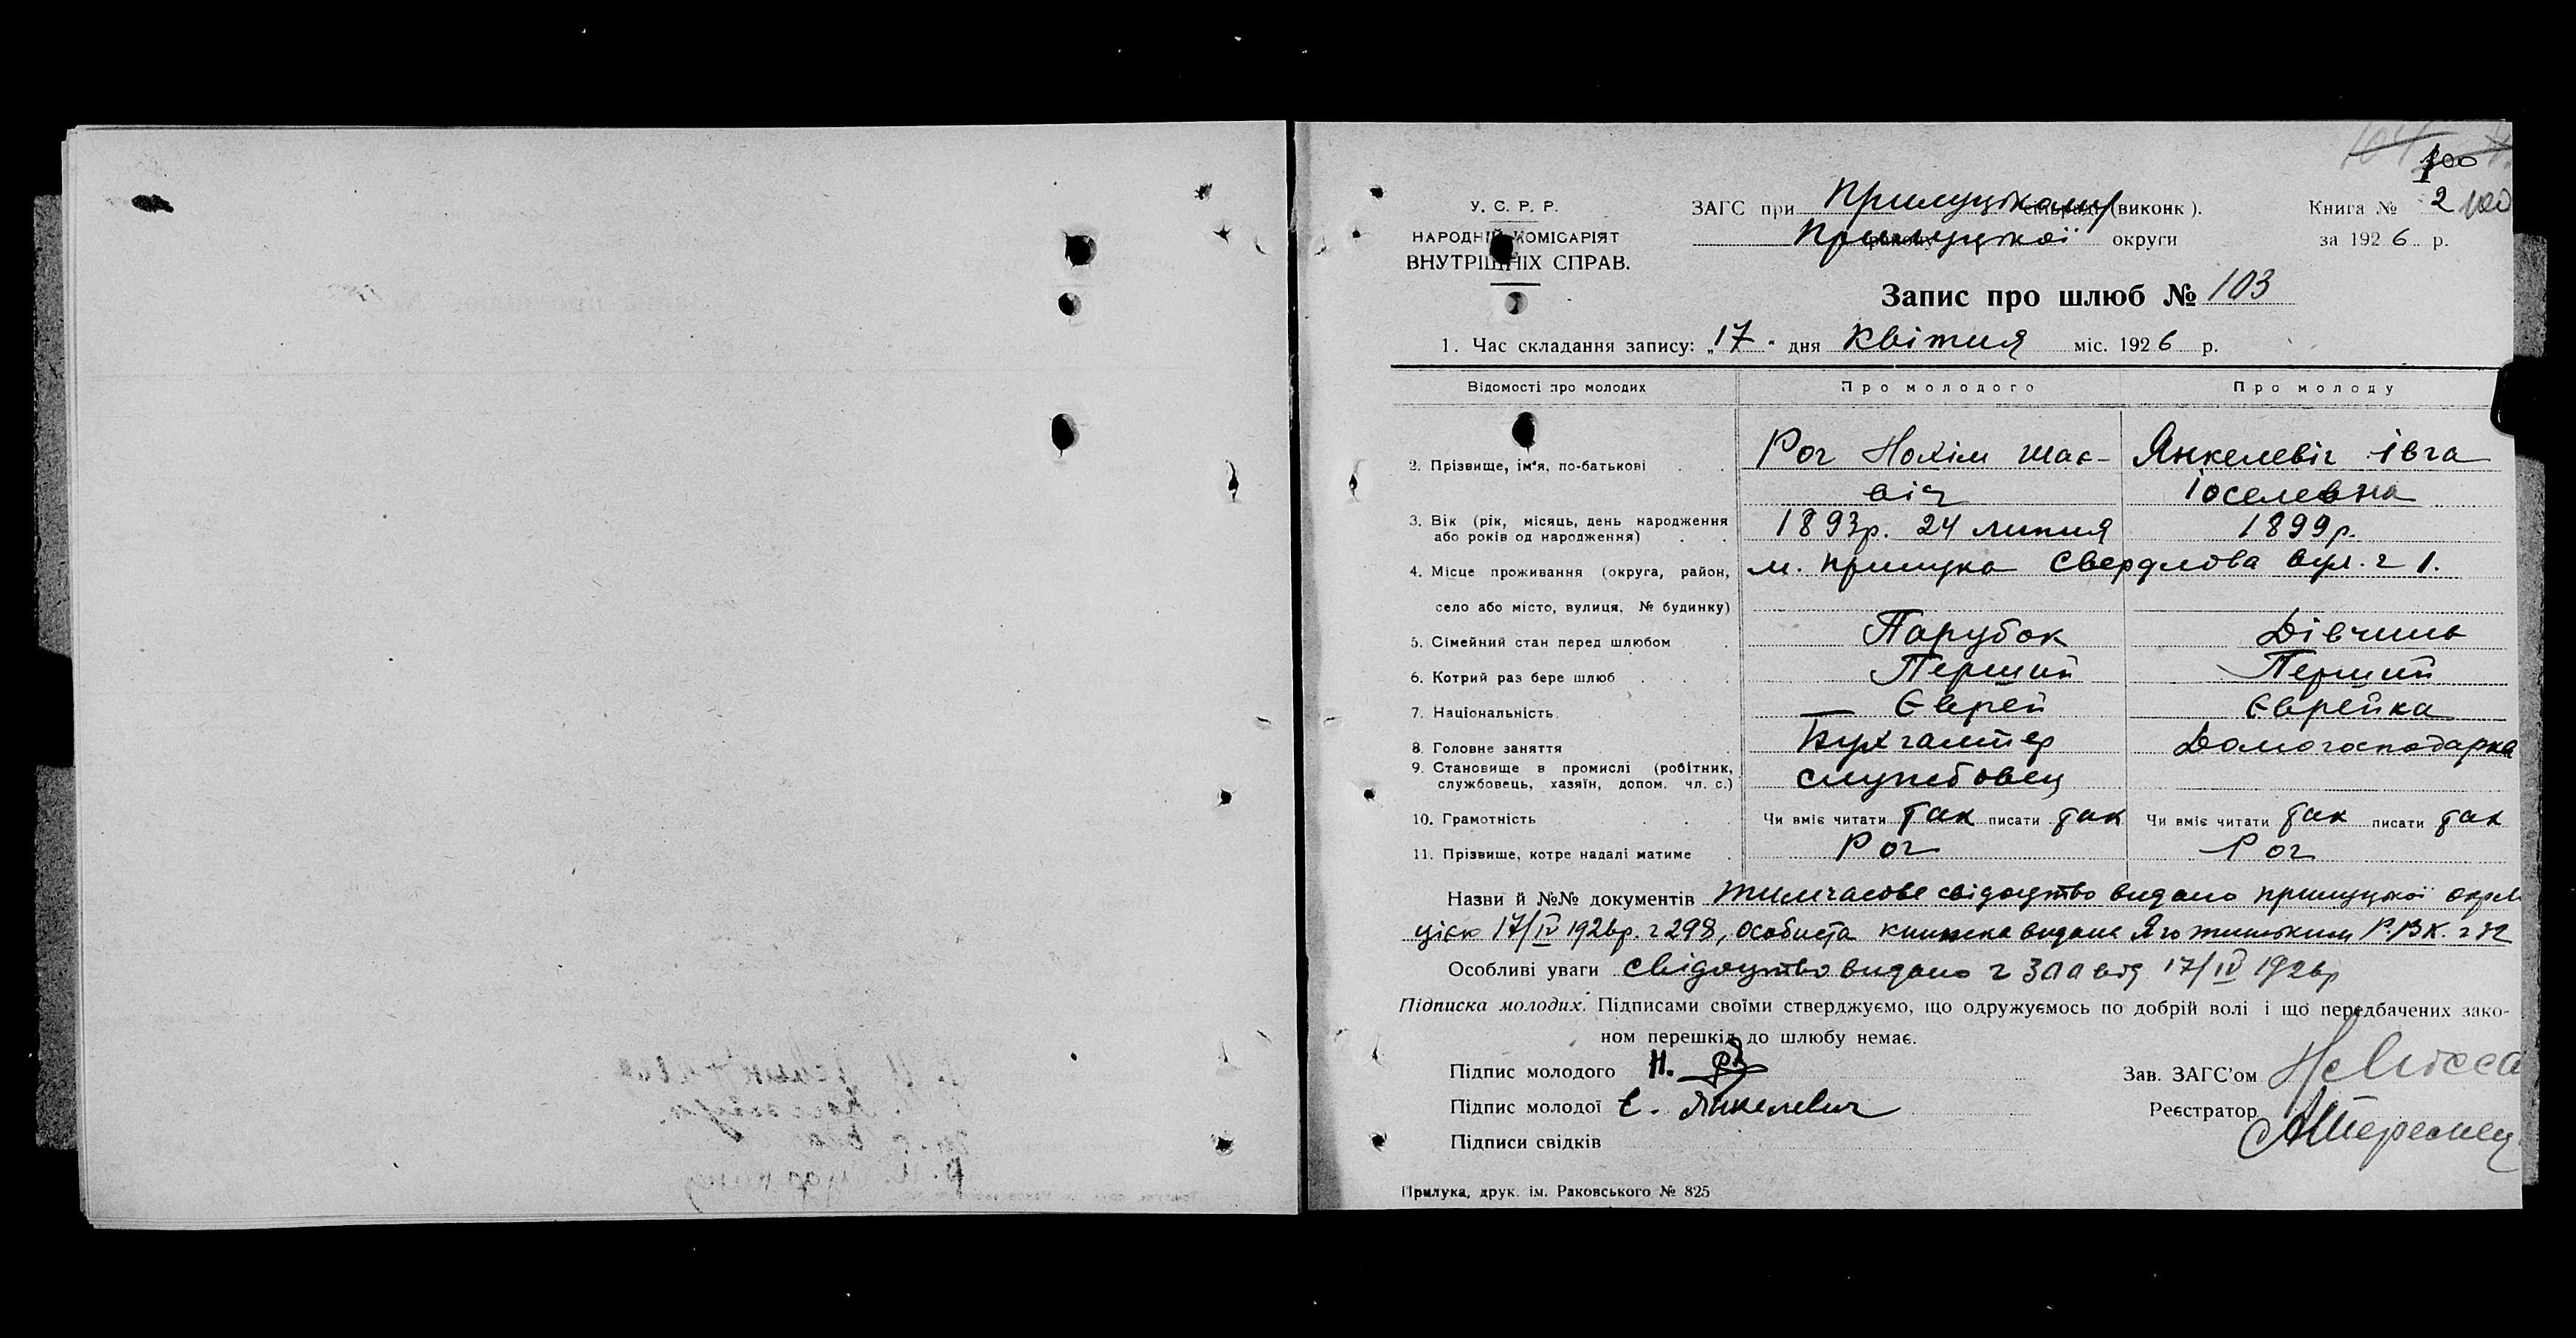 100
У. С. Р. Р.
НАРОДНІЙ КОМІСАРІЯТ
ВНУТРІШНІХ СПРАВ.
ЗАГС при Прилуцькому (виконк ).
Прилуцької округи
Книга № 2 100
за 1926 р.
Запис про шлюб № 103
1. Час складання запису: „17“ дня Квітня міс. 1926 р.
Відомості про молодих Про молодого Про молоду
2. Прізвище, ім'я, по-батькові Рог Нохім Шає- Янкелевіч Івга
віч Іоселевна
3. Вік (рік, місяць, день народження 1893р. 24 липня 1899р.
або років од народження)
4. Місце проживання (округа, район, м. Прилука Свердлова вул. ч 1.
село або місто, вулиця, № будинку)
5. Сімейний стан перед шлюбом Парубок Дівчина
6. Котрий раз бере шлюб Перший Перший
7. Національність Єврей Єврейка
8. Головне заняття Бухгалтер Домогосподарка
9. Становище в промислі (робітник, службовець
службовець, хазяїн, допом. чл. с.)
10. Грамотність Чи вміє читати так писати так Чи вміє читати так писати так
11. Прізвище, котре надалі матиме Рог Рог
Назви й №№ документів Тимчасове свідоцтво видано прилуцької окрмі
цією 17/IV 1926р. ч 298, особиста книжка видана Яготинським Р.В.К.
Особливі уваги Свідоцтво видано ч від 17/IV 1926р
Підписка молодих. Підписами своїми стверджуємо, що одружуємось по добрій волі і що передбачених зако-
ном перешкід до шлюбу немає.
Підпис молодого Н. Рог
Підпис молодої Є. Янкелевич
Підписи свідків
Зав. ЗАГС'ом
Реєстратор
Прилука, друк. ім. Раковського № 825